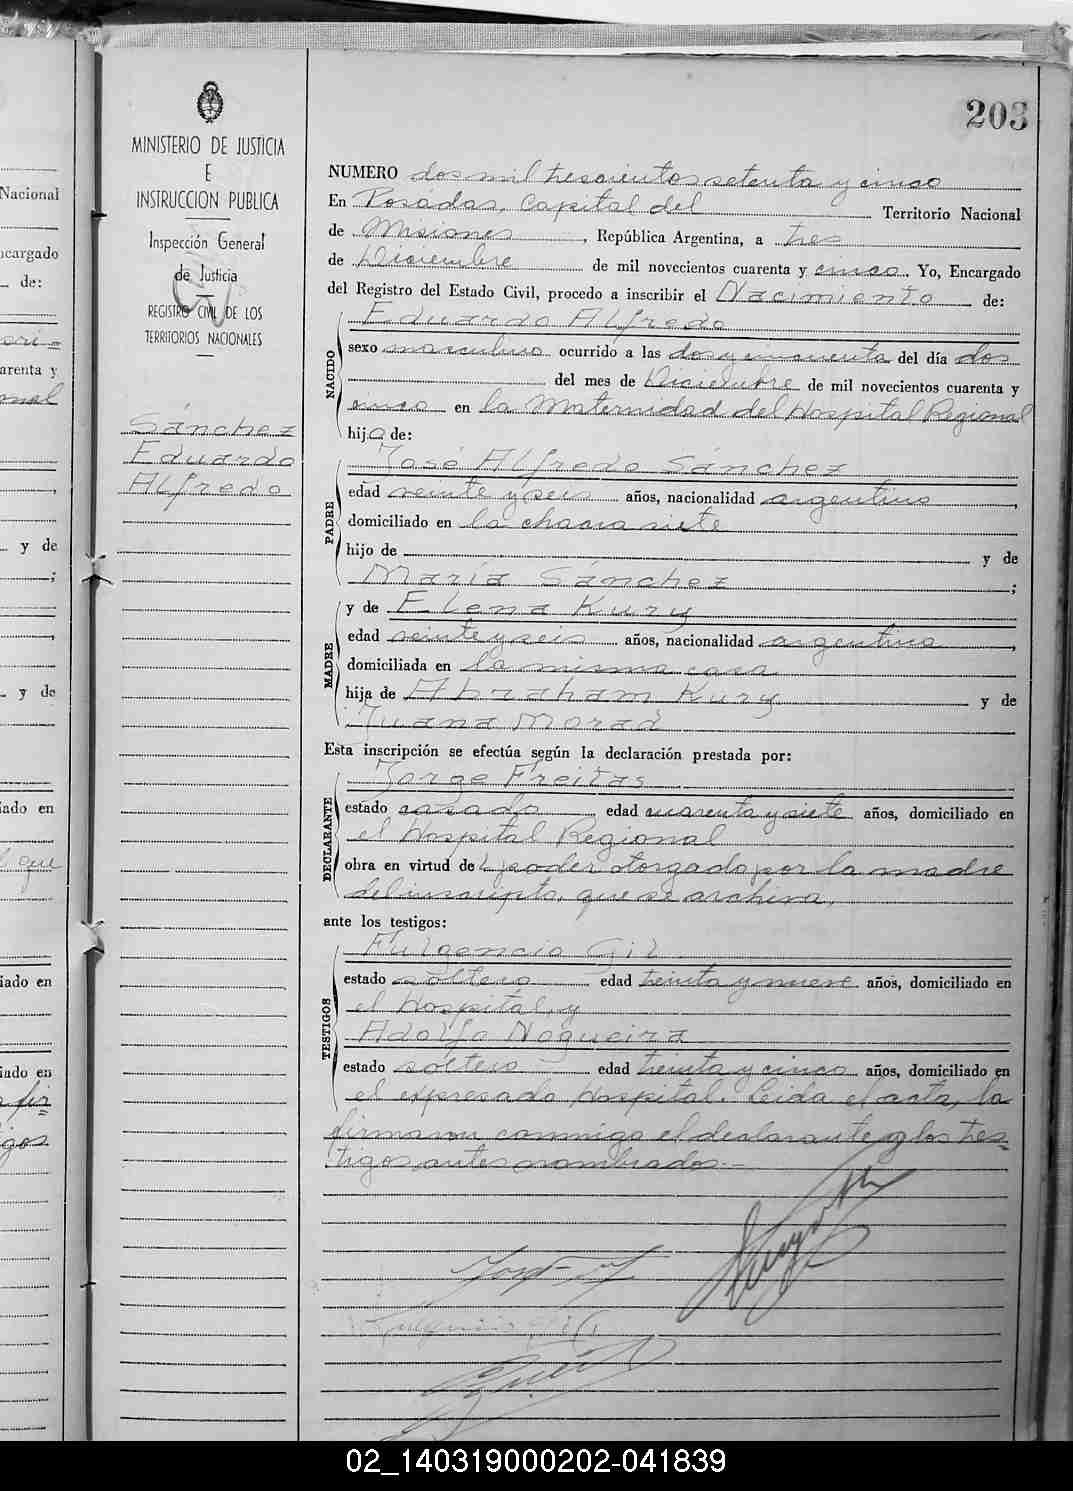 203
MINISTERIO DE JUSTICIA
E
INSTRUCCION PUBLICA
Inspección General
de Justicia
REGISTRO CIVIL DE LOS
TERRITORIOS NACIONALES
Sánchez
Eduardo
Alfredo
NUMERO dos mil trescientos setenta y cinco
En Posadas, Capital del Territorio Nacional
de Misiones, República Argentina, a tres
de Diciembre de mil novecientos cuarenta y cinco. Yo, Encargado
del Registro del Estado Civil, procedo a inscribir el Nacimiento de:
NACIDO
Eduardo Alfredo
sexo masculino ocurrido a las dos y cincuenta del día dos
del mes de Diciembre de mil novecientos cuarenta y
cinco en la Maternidad del Hospital Regional
hijo de:
PADRE
José Alfredo Sánchez
edad veinte y seis años, nacionalidad argentino,
domiciliado en la chacra siete
hijo de y de
María Sánchez;
MADRE
y de Elena Kury
edad veinte y seis años, nacionalidad argentina,
domiciliada en la misma casa
hija de Abraham Kury y de
Juana Morad
Esta inscripción se efectúa según la declaración prestada por:
DECLARANTE
Jorge Freitas
estado casado edad cuarenta y siete años, domiciliado en
el Hospital Regional
obra en virtud de poder otorgado por la madre
del inscripto, que se archiva.
ante los testigos:
TESTIGOS
Fulgencio Gil
estado soltero edad treinta y nueve años, domiciliado en
el Hospital, y
Adolfo Nogueira
estado soltero edad treinta y cinco años, domiciliado en
el expresado Hospital. Leida el acta, la
firmaron conmigo el declarante y los tes=
tigos antes nombrados.-
Nacional
ncargado
de:
arenta y
y de
;
y de
iado en
que
iado en
iado en
fir
tigos
02_140319000202-041839